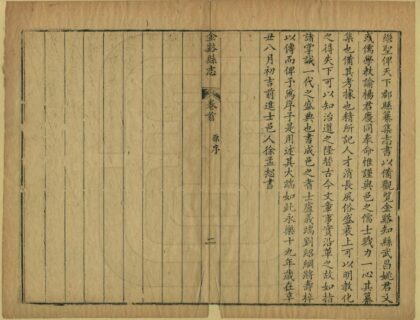 繼聖俾天下郡縣纂集志書以備觀覽金谿知縣武昌姚君文
或儒學教諭楊君慶同奉命惟謹與邑之儒士戮力一心其纂
集也備其考據也精所記人才消長風俗盛衰上可以明教化
之得失下可以知治道之隆替古今文章事實沿革之故如指
諸掌誠一代之盛典也書成邑之耆士盧義瑞劉紹綱將壽梓
以傳而俾予為序予是用述其大端如此永樂十九年歲在辛
丑八月初吉前進士邑人徐孟恕書
金谿縣志
卷首
原序
二